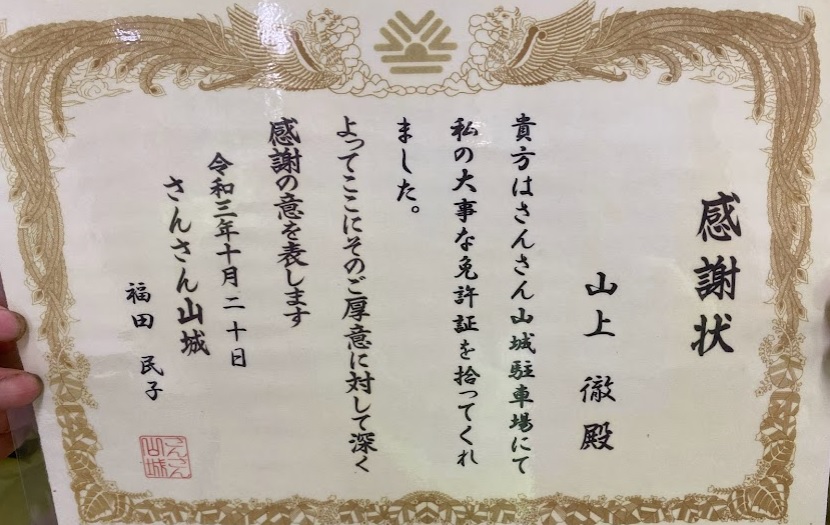 感謝状
山上 徹 殿
貴方はさんさん山城駐車場にて
私の大事な免許証を拾ってくれ
ました。
よってここにそのご厚意に対して深く
感謝の意を表します
令和三年十月二十日
さんさん山城
福田 民子
さんさん
山城